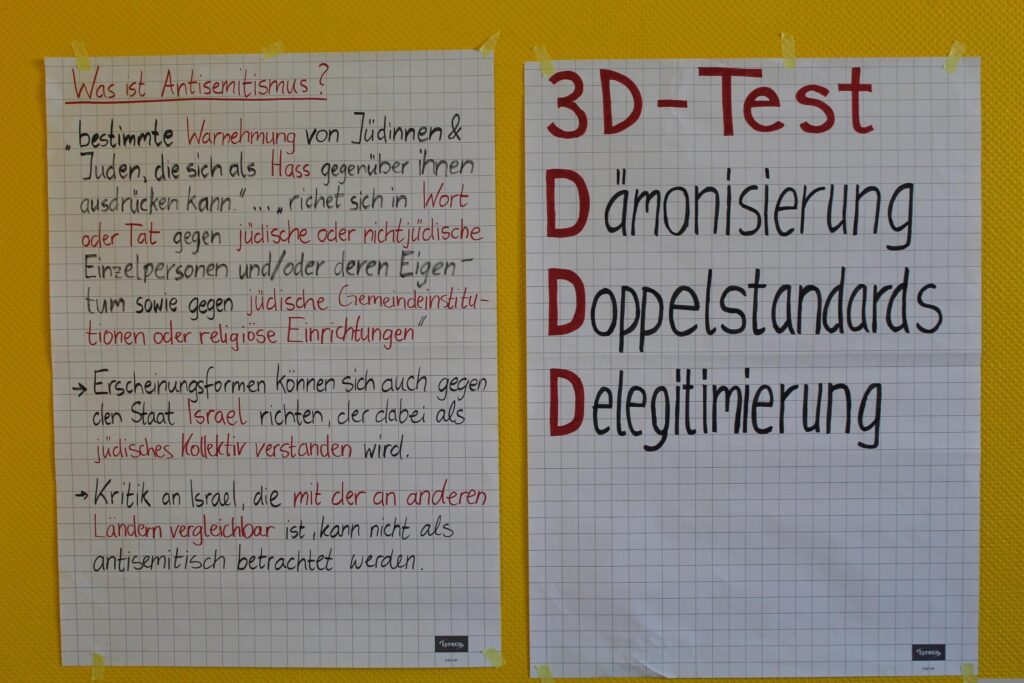 Was ist Antisemitismus?
„bestimmte Warnehmung von Jüdinnen &
Juden, die sich als Hass gegenüber ihnen
ausdrücken kann." ... „richet sich in Wort
oder Tat gegen jüdische oder nichtjüdische
Einzelpersonen und/oder deren Eigen-
tum sowie gegen jüdische Gemeindeinstitu-
tionen oder religiöse Einrichtungen"
→ Erscheinungsformen können sich auch gegen
den Staat Israel richten, der dabei als
jüdisches Kollektiv verstanden wird.
→ Kritik an Israel, die mit der an anderen
Ländern vergleichbar ist, kann nicht als
antisemitisch betrachtet werden.
lyreco
3D-Test
Dämonisierung
Doppelstandards
Delegitimierung
lyreco